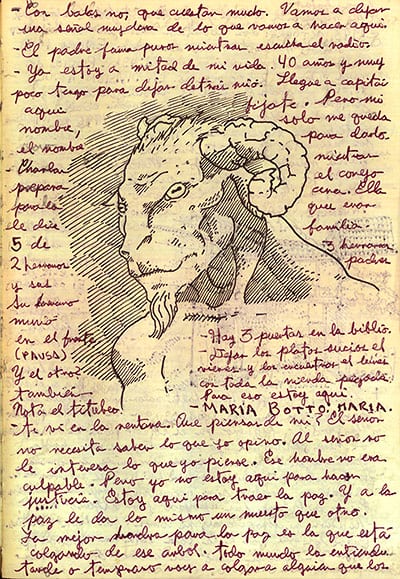 - Con balas no, que cuestan mucho. Vamos a dejar
una señal muy dura de lo que vamos a hacer aquí.
- El padre fuma puros mientras escucha el radio.
- Ya estoy a mitad de mi vida. 40 años y muy
poco tengo para dejar detrás mío. Llegué a capitán
aquí fíjate. Pero mi
nombre, solo me queda
el nombre para darlo
- Charlar mientras
prepara el conejo
para la cena. Ella
le dice que eran
5 de familia
2 hermanos 3 hermanas
y sus padres
Su hermano
murió
en el frente
(PAUSA)
Y el otro?
también
Nota el titubeo.
- Hay 3 puertas en la biblio.
- Dejar los platos sucios el
viernes y los encuentras el lunes
con toda la mierda pegada.
Para eso estoy aquí.
- MARÍA BOTTO: MARIA.
- te vi en la ventana. Que piensas de mi? El señor
no necesita saber lo que yo opino. Al señor no
le interesa lo que yo piense. Ese hombre no era
culpable. Pero yo no estoy aquí para hacer
justicia. Estoy aquí para traer la paz. Y a la
paz le da lo mismo un muerto que otro.
La mejor para la paz es la que está
colgando de ese arbol. todo mundo la entiende
tarde o temprano vas a colgar a alguien que los